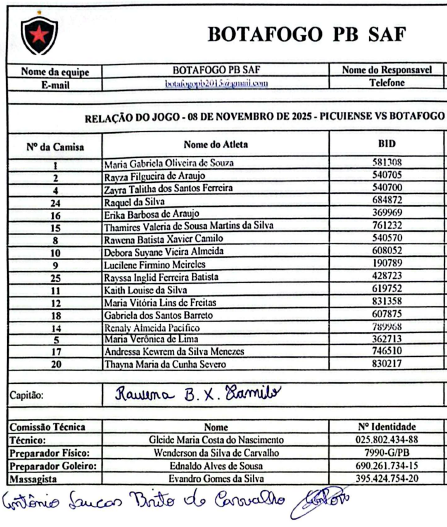 BOTAFOGO PB SAF
Nome da equipe BOTAFOGO PB SAF Nome do Responsavel
E-mail botafogopb2015@gmail.com Telefone
RELAÇÃO DO JOGO - 08 DE NOVEMBRO DE 2025 - PICUIENSE VS BOTAFOGO
Nº da Camisa Nome do Atleta BID
1 Maria Gabriela Oliveira de Souza 581308
2 Rayza Filgueira de Araujo 540705
4 Zayra Talitha dos Santos Ferreira 540700
24 Raquel da Silva 684872
16 Erika Barbosa de Araujo 369969
15 Thamires Valeria de Sousa Martins da Silva 761232
8 Rawena Batista Xavier Camilo 540570
10 Debora Suyane Vieira Almeida 608052
9 Lucilene Firmino Meireles 190789
25 Rayssa Inglid Ferreira Batista 428723
11 Kaith Louise da Silva 619752
12 Maria Vitória Lins de Freitas 831358
18 Gabriela dos Santos Barreto 607875
14 Renaly Almeida Pacifico 789968
5 Maria Verônica de Lima 362713
17 Andressa Kewrem da Silva Menezes 746510
20 Thayna Maria da Cunha Severo 830217
Capitão: Rawena B. X. Camilo
Comissão Técnica Nome Nº Identidade
Técnico: Gleide Maria Costa do Nascimento 025.802.434-88
Preparador Físico: Wenderson da Silva de Carvalho 7990-G/PB
Preparador Goleiro: Ednaldo Alves de Sousa 690.261.734-15
Massagista Evandro Gomes da Silva 395.424.754-20
Antônio Lucas Brito de Carvalho